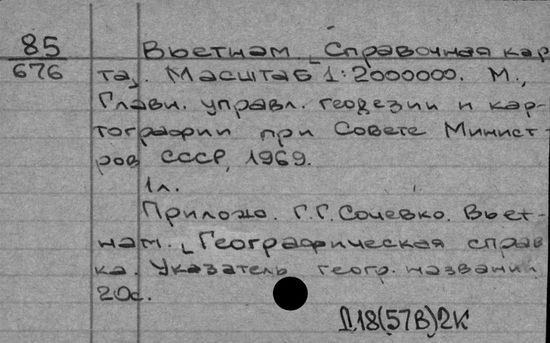 85
676
Вьетнам. [Справочная кар
та]. Масштаб 1:2000000. М.,
Главн. управл. геодезии и кар-
тографии при Совете Минист-
ров СССР, 1969.
1л.
Прилож. Г.Г. Сочевко. Вьет-
нам. [Географическая справ
ка. Указатель геогр. названий
20с.
Д18(57В)2К